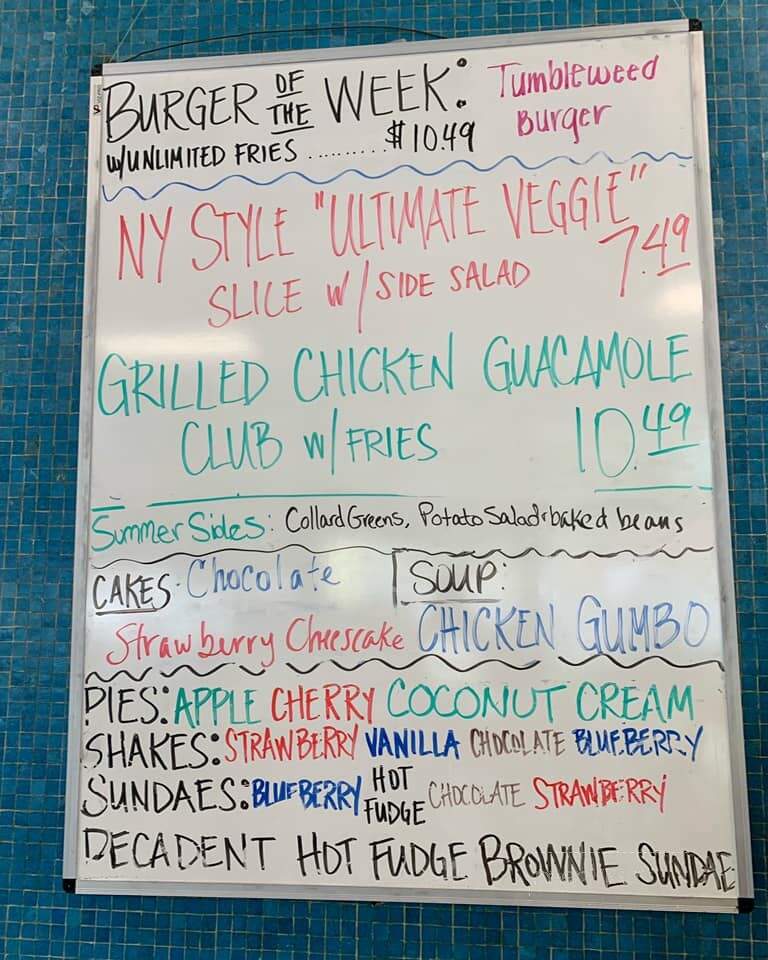 BURGER OF THE WEEK: Tumbleweed Burger
W/UNLIMITED FRIES ......... $10.49
NY STYLE "ULTIMATE VEGGIE"
SLICE W/SIDE SALAD 7.49
GRILLED CHICKEN GUACAMOLE
CLUB W/FRIES 10.49
Summer Sides: Collard Greens, Potato Salad + baked beans
CAKES: Chocolate
Strawberry Cheescake
SOUP:
CHICKEN GUMBO
PIES: APPLE CHERRY COCONUT CREAM
SHAKES: STRAWBERRY VANILLA CHOCOLATE BLUEBERRY
SUNDAES: BLUEBERRY HOT FUDGE CHOCOLATE STRAWBERRY
DECADENT HOT FUDGE BROWNIE SUNDAE